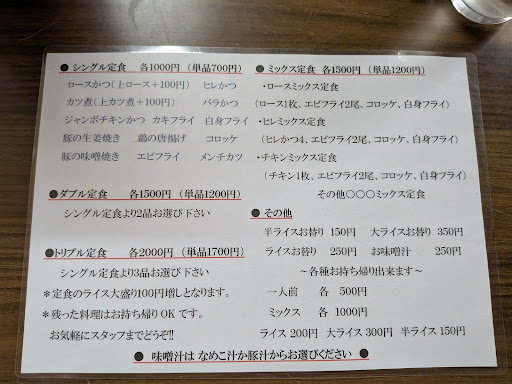 ● シングル定食　各1000円（単品700円）
ロースかつ（上ロース＋100円）　ヒレかつ
カツ煮（上カツ煮＋100円）　バラかつ
ジャンボチキンかつ　カキフライ　白身フライ
豚の生姜焼き　鶏の唐揚げ　コロッケ
豚の味噌焼き　エビフライ　メンチカツ
● ダブル定食　各1500円（単品1200円）
シングル定食より2品お選び下さい
● トリプル定食　各2000円（単品1700円）
シングル定食より3品お選び下さい
＊定食のライス大盛り100円増しとなります。
＊残った料理はお持ち帰りOKです。
お気軽にスタッフまでどうぞ!!
● ミックス定食　各1500円（単品1200円）
・ロースミックス定食
（ロース1枚、エビフライ2尾、コロッケ、白身フライ）
・ヒレミックス定食
（ヒレかつ4、エビフライ2尾、コロッケ、白身フライ）
・チキンミックス定食
（チキン1枚、エビフライ2尾、コロッケ、白身フライ）
その他○○○ミックス定食
● その他
半ライスお替り　150円　大ライスお替り　350円
ライスお替り　250円　お味噌汁　250円
～各種お持ち帰り出来ます～
一人前　各　500円
ミックス　各　1000円
ライス 200円　大ライス 300円　半ライス 150円
● 味噌汁は なめこ汁か豚汁からお選びください ●